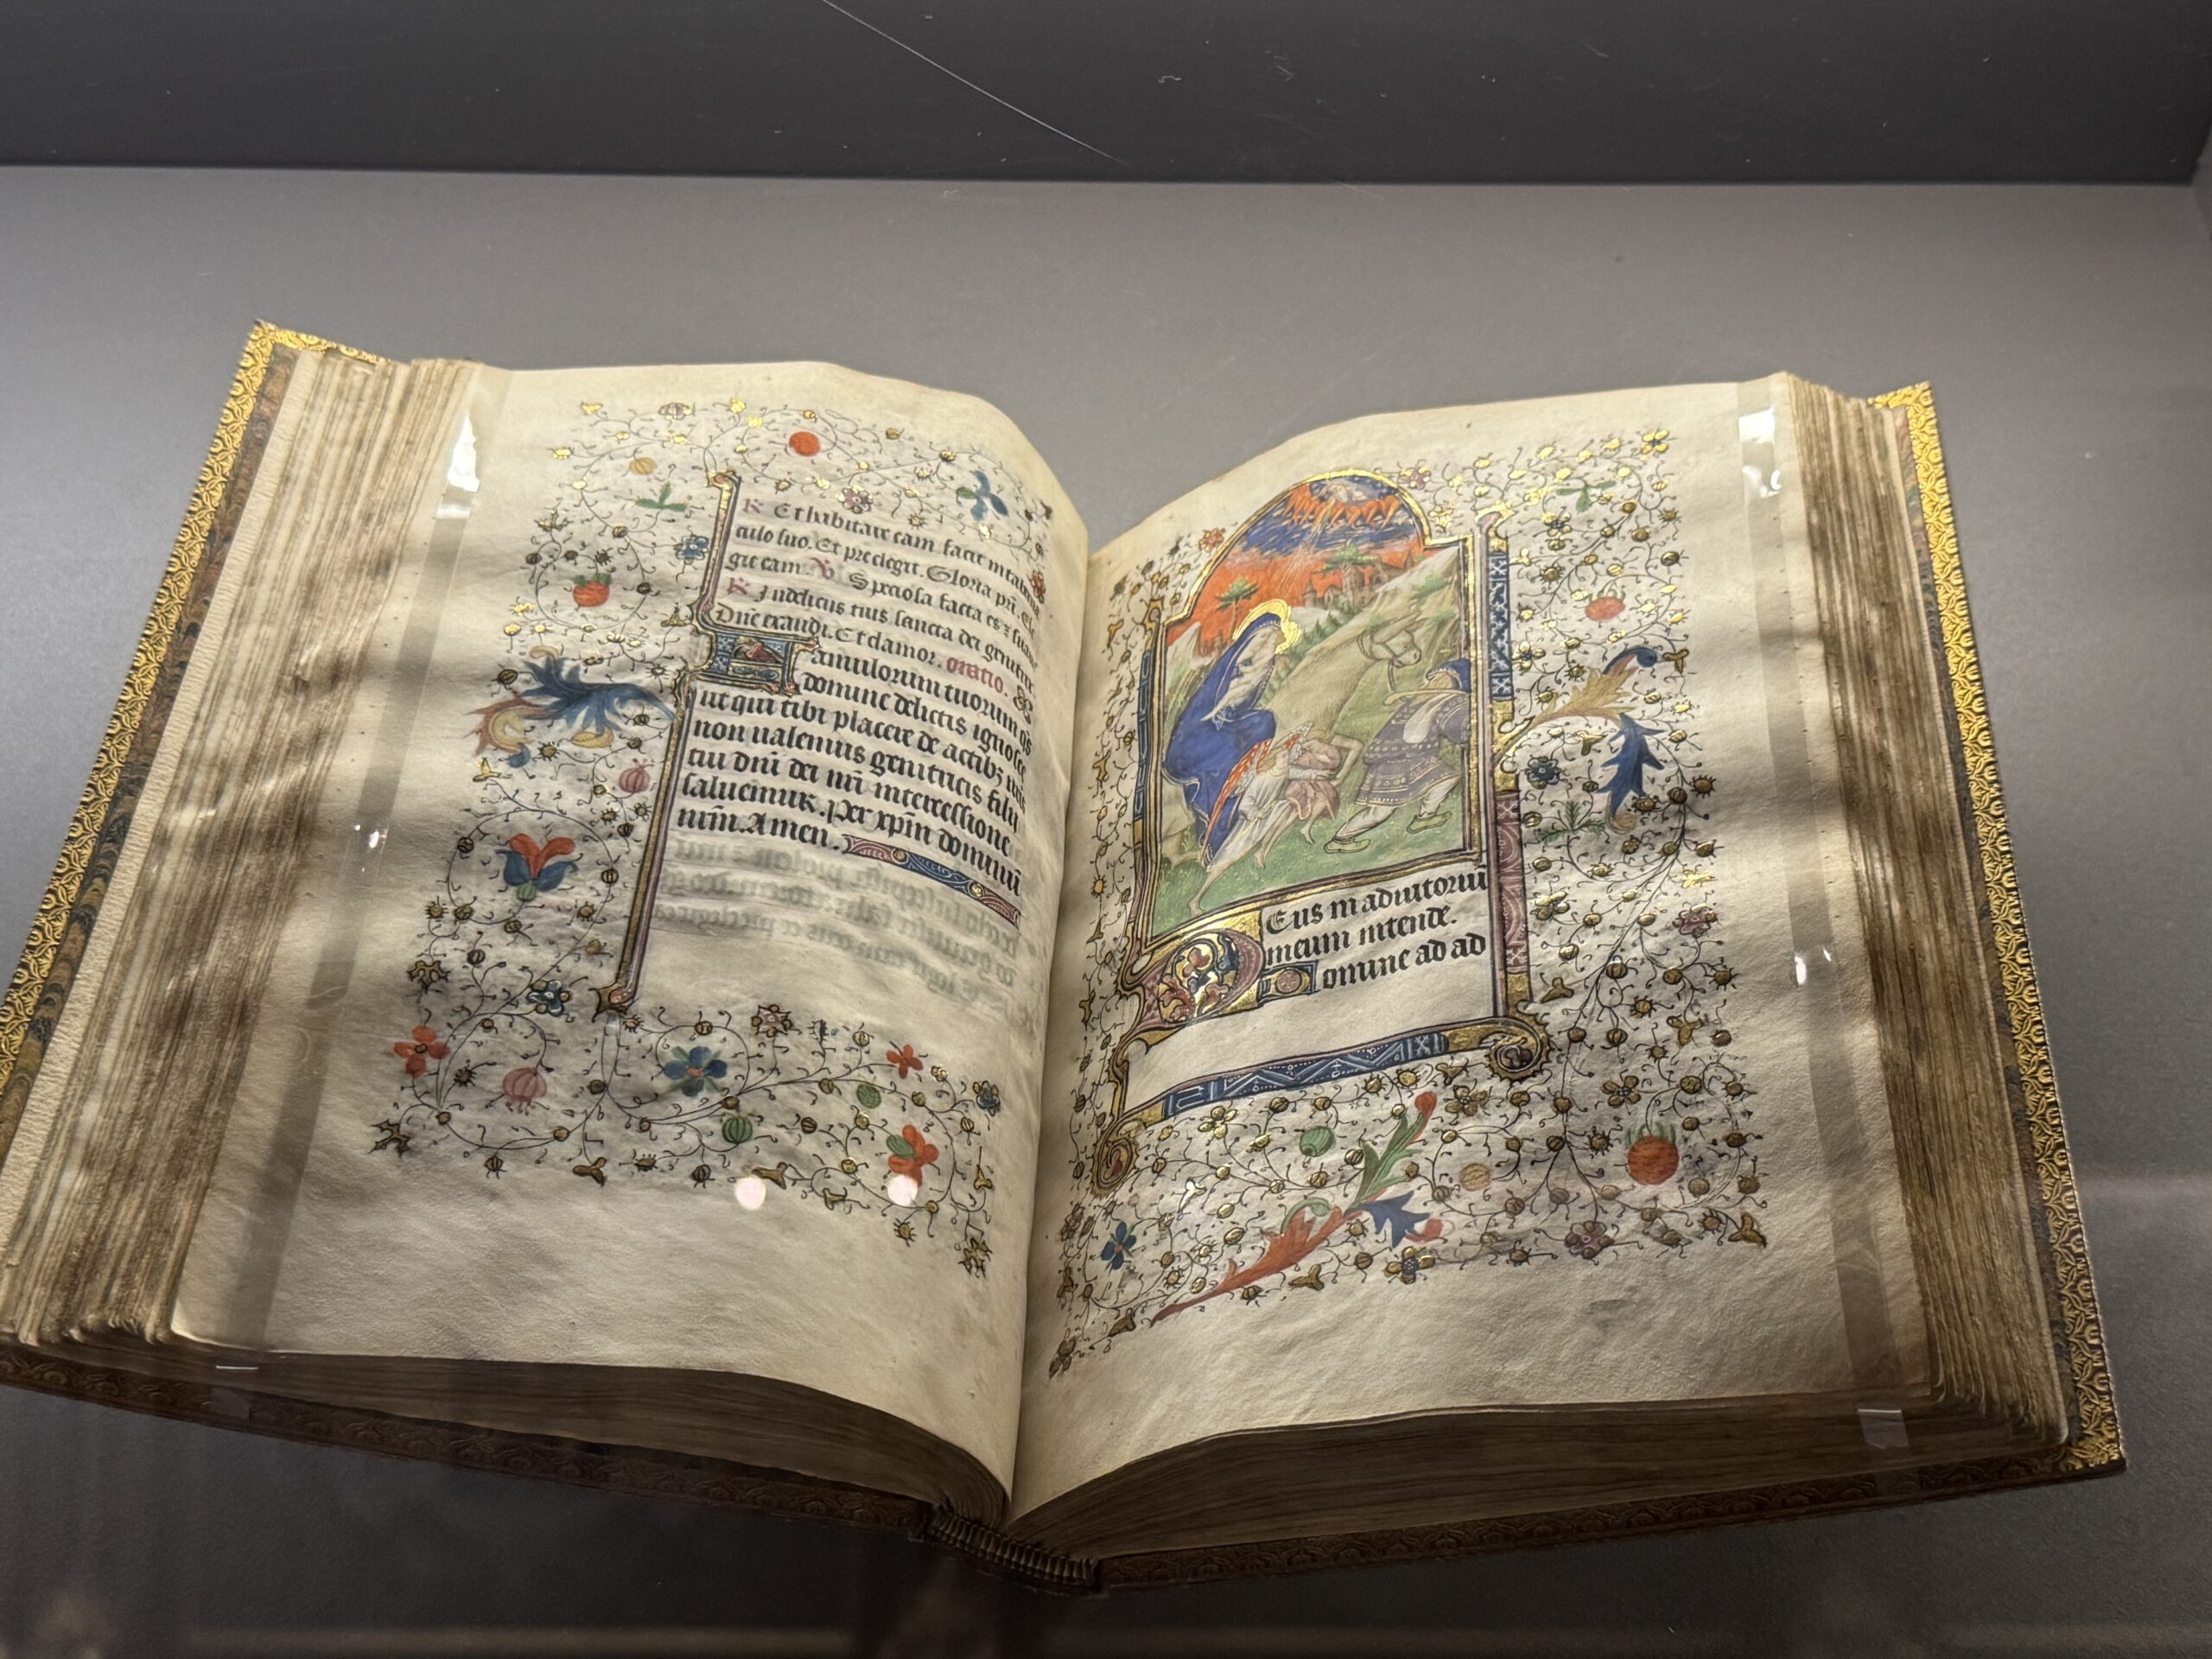 R Et habitare eam facit in taberna
culo suo. Et preelegit. Gloria pri. Ele
git eam. V. Speciosa facta es ⁊ suauis
R Indeliciis tuis sancta dei genitrix
Dne exaudi. Et clamor. oratio.
Famulorum tuorum qs
domine delictis ignosce
ut qui tibi placere de actibꝫ nris
non ualemus genitricis filii
tui dni dei nri intercessione
saluemur. Per xpm dominū
nrm. Amen.
Deus in adiutoriū
meum intende.
Domine ad ad